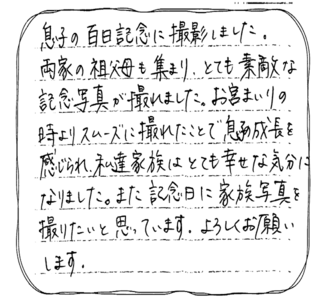 息子の百日記念に撮影しました。
両家の祖父母も集まり、とても素敵な
記念写真が撮れました。お宮まいりの
時よりスムーズに撮れたことで息子の成長を
感じられ、私達家族はとても幸せな気分に
なりました。また記念日に家族写真を
撮りたいと思っています。よろしくお願い
します。